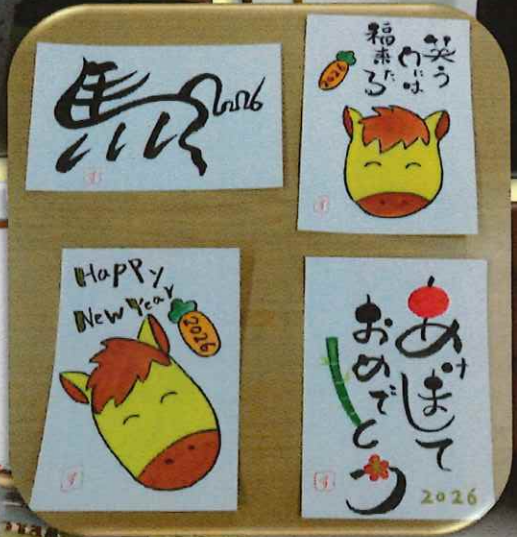 馬
2026
笑う
門には
福来たる
2026
Happy
New Year
2026
あけまして
おめでとう
2026